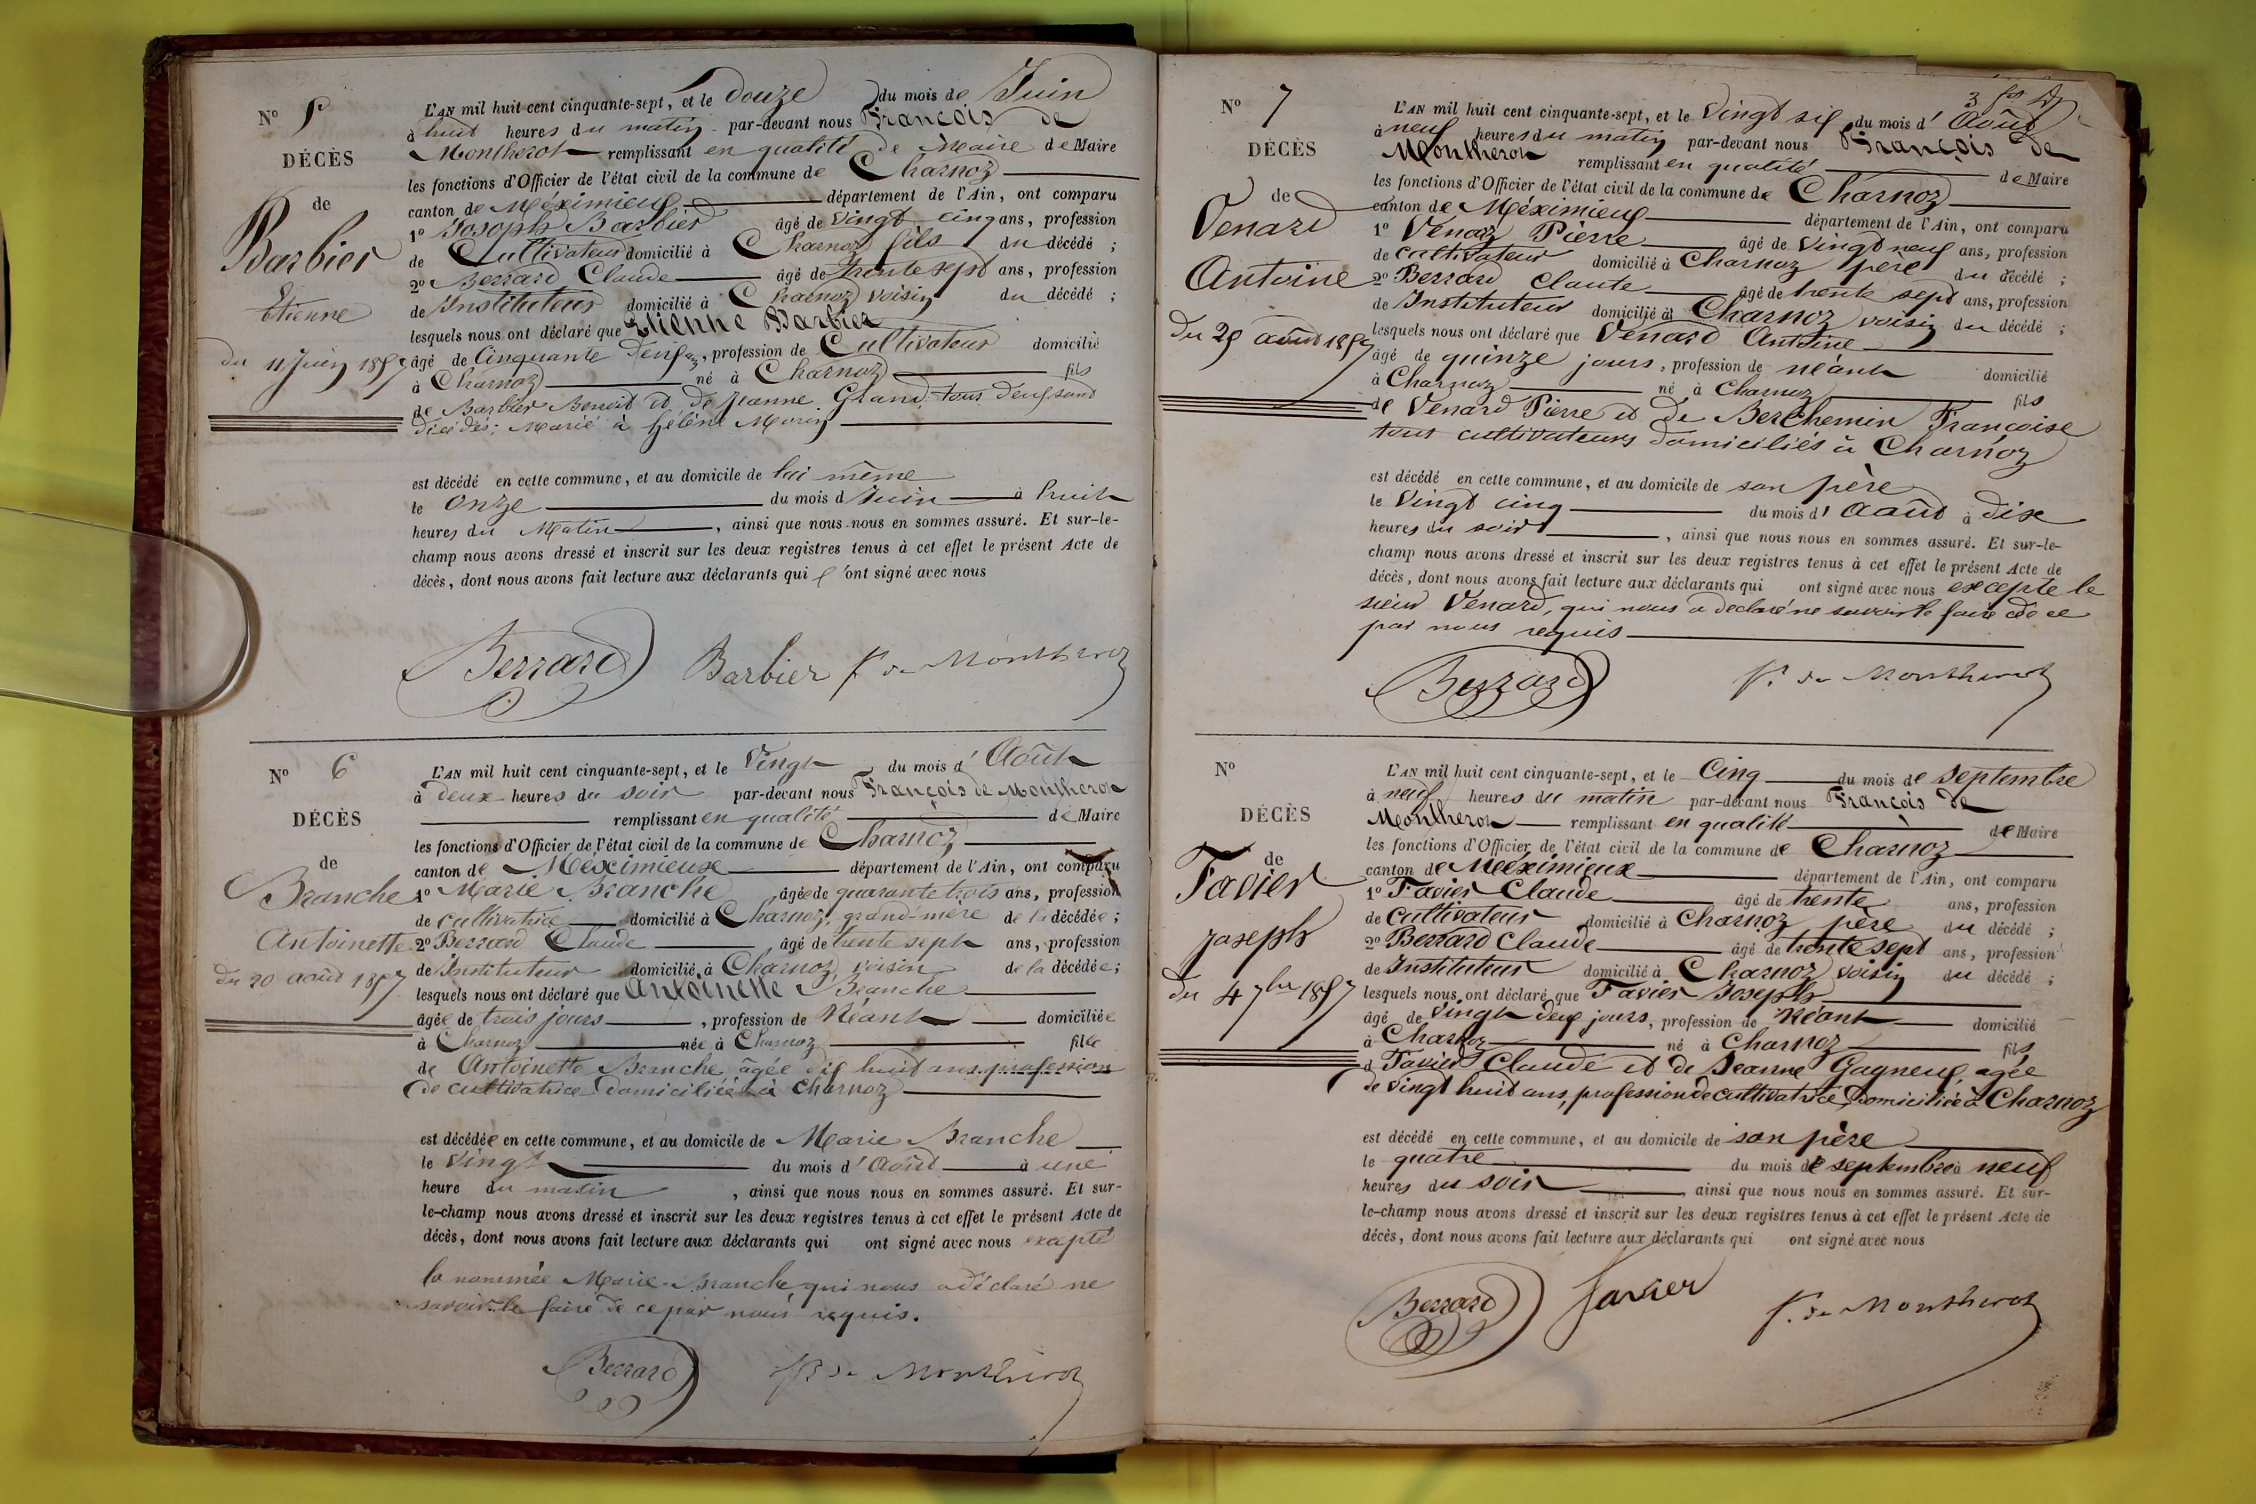 N° 5
DÉCÈS
de
Barbier
Etienne
du 11 Juin 1857
L'AN mil huit cent cinquante-sept, et le douze du mois de Juin
à huit heures du matin par-devant nous François de
Montherot remplissant en qualité de Maire de Maire
les fonctions d'Officier de l'état civil de la commune de Charnoz
canton de Méximieux département de l'Ain, ont comparu
1° Joseph Barbier âgé de vingt cinq ans, profession
de Cultivateur domicilié à Charnoz fils du décédé ;
2° Berrard Claude âgé de trente sept ans, profession
de Instituteur domicilié à Charnoz voisin du décédé ;
lesquels nous ont déclaré que Etienne Barbier
âgé de Cinquante neuf ans, profession de Cultivateur domicilié
à Charnoz né à Charnoz fils
de Barbier Benoit et de Jeanne Grand, tous deux sont
décédés ; Marié à Hélène Morin
est décédé en cette commune, et au domicile de lui même
le onze du mois d Juin à huit
heures du Matin, ainsi que nous nous en sommes assuré. Et sur-le-
champ nous avons dressé et inscrit sur les deux registres tenus à cet effet le présent Acte de
décès, dont nous avons fait lecture aux déclarants qui l'ont signé avec nous
Berrard Barbier f. de Montherot
N° 6
DÉCÈS
de
Branche
Antoinette
du 20 août 1857
L'AN mil huit cent cinquante-sept, et le Vingt du mois d' Août
à deux heures du soir par-devant nous François de Montherot
remplissant en qualité de Maire
les fonctions d'Officier de l'état civil de la commune de Charnoz
canton de Méximieux département de l'Ain, ont comparu
1° Marie Branche âgée de quarante trois ans, profession
de cultivatrice domicilié à Charnoz, grand-mère de la décédée ;
2° Berrard Claude âgé de trente sept ans, profession
de Instituteur domicilié à Charnoz voisin de la décédée ;
lesquels nous ont déclaré que Antoinette Branche
âgée de trois jours, profession de Néant domiciliée
à Charnoz née à Charnoz fille
de Antoinette Branche âgée dix huit ans profession
de cultivatrice domiciliée à Charnoz
est décédée en cette commune, et au domicile de Marie Branche
le Vingt du mois d' Août à une
heure du matin, ainsi que nous nous en sommes assuré. Et sur-
le-champ nous avons dressé et inscrit sur les deux registres tenus à cet effet le présent Acte de
décès, dont nous avons fait lecture aux déclarants qui ont signé avec nous excepté
la nommée Marie Branche qui nous a déclaré ne
savoir le faire de ce par nous requis.
Berrard f. de Montherot
N° 7
DÉCÈS
de
Venard
Antoine
du 25 août 1857
L'AN mil huit cent cinquante-sept, et le Vingt six du mois d' Août
à neuf heures du matin par-devant nous François de
Montherot remplissant en qualité de Maire
les fonctions d'Officier de l'état civil de la commune de Charnoz
canton de Méximieux département de l'Ain, ont comparu
1° Venard Pierre âgé de vingt neuf ans, profession
de cultivateur domicilié à Charnoz père du décédé ;
2° Berrard Claude âgé de trente sept ans, profession
de Instituteur domicilié à Charnoz voisin du décédé ;
lesquels nous ont déclaré que Venard Antoine
âgé de quinze jours, profession de néant domicilié
à Charnoz né à Charnoz fils
de Venard Pierre et de Berchemin Françoise
tous cultivateurs domiciliés à Charnoz
est décédé en cette commune, et au domicile de son père
le Vingt cinq du mois d' Août à dix
heures du soir, ainsi que nous nous en sommes assuré. Et sur-le-
champ nous avons dressé et inscrit sur les deux registres tenus à cet effet le présent Acte de
décès, dont nous avons fait lecture aux déclarants qui ont signé avec nous excepté le
sieur Venard, qui nous a declaré ne savoir le faire de ce
par nous requis
Berrard f. de Montherot
N°
DÉCÈS
de
Favier
Joseph
du 4 7bre 1857
L'AN mil huit cent cinquante-sept, et le Cinq du mois de septembre
à neuf heures du matin par-devant nous François de
Montherot remplissant en qualité de Maire
les fonctions d'Officier de l'état civil de la commune de Charnoz
canton de Méximieux département de l'Ain, ont comparu
1° Favier Claude âgé de trente ans, profession
de cultivateur domicilié à Charnoz père du décédé ;
2° Berrard Claude âgé de trente sept ans, profession
de Instituteur domicilié à Charnoz voisin du décédé ;
lesquels nous ont déclaré que Favier Joseph
âgé de Vingt deux jours, profession de Néant domicilié
à Charnoz né à Charnoz fils
d Favier Claude et de Jeanne Gagneux, agée
de vingt huit ans, profession de cultivatrice, domiciliée à Charnoz
est décédé en cette commune, et au domicile de son père
le quatre du mois de septembre à neuf
heures du soir, ainsi que nous nous en sommes assuré. Et sur-
le-champ nous avons dressé et inscrit sur les deux registres tenus à cet effet le présent Acte de
décès, dont nous avons fait lecture aux déclarants qui ont signé avec nous
Berrard favier f. de Montherot